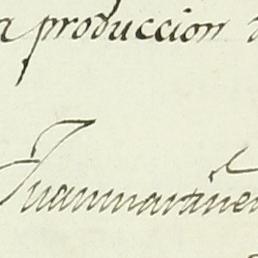 a produccion
Juanmartine